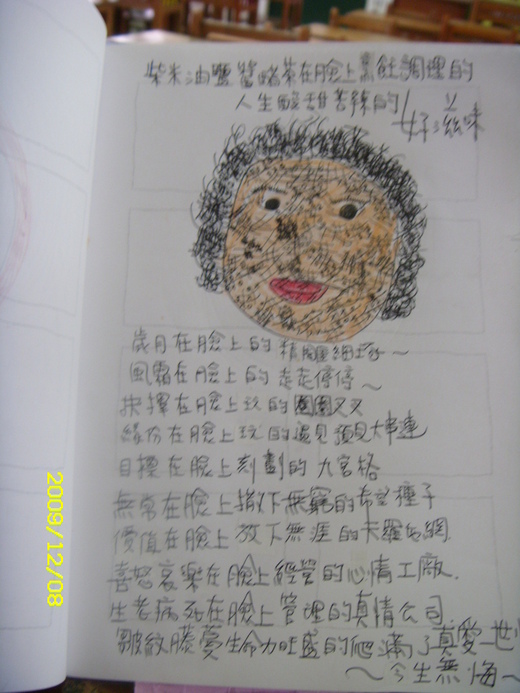 柴米油鹽醬醋茶在臉上烹飪調理的
人生酸甜苦辣的好滋味
歲月在臉上的精雕細琢～
風霜在臉上的走走停停～
抉擇在臉上玩的圈圈叉叉
緣份在臉上玩的遇見預見大串連
目標在臉上刻劃的九宮格
無常在臉上撒下無窮的希望種子
價值在臉上放下無涯的天羅地網.
喜怒哀樂在臉上經營的心情工廠.
生老病死在臉上管理的真情公司
皺紋藤蔓生命力旺盛的爬滿了真愛一世情
～今生無悔～
2009/12/08